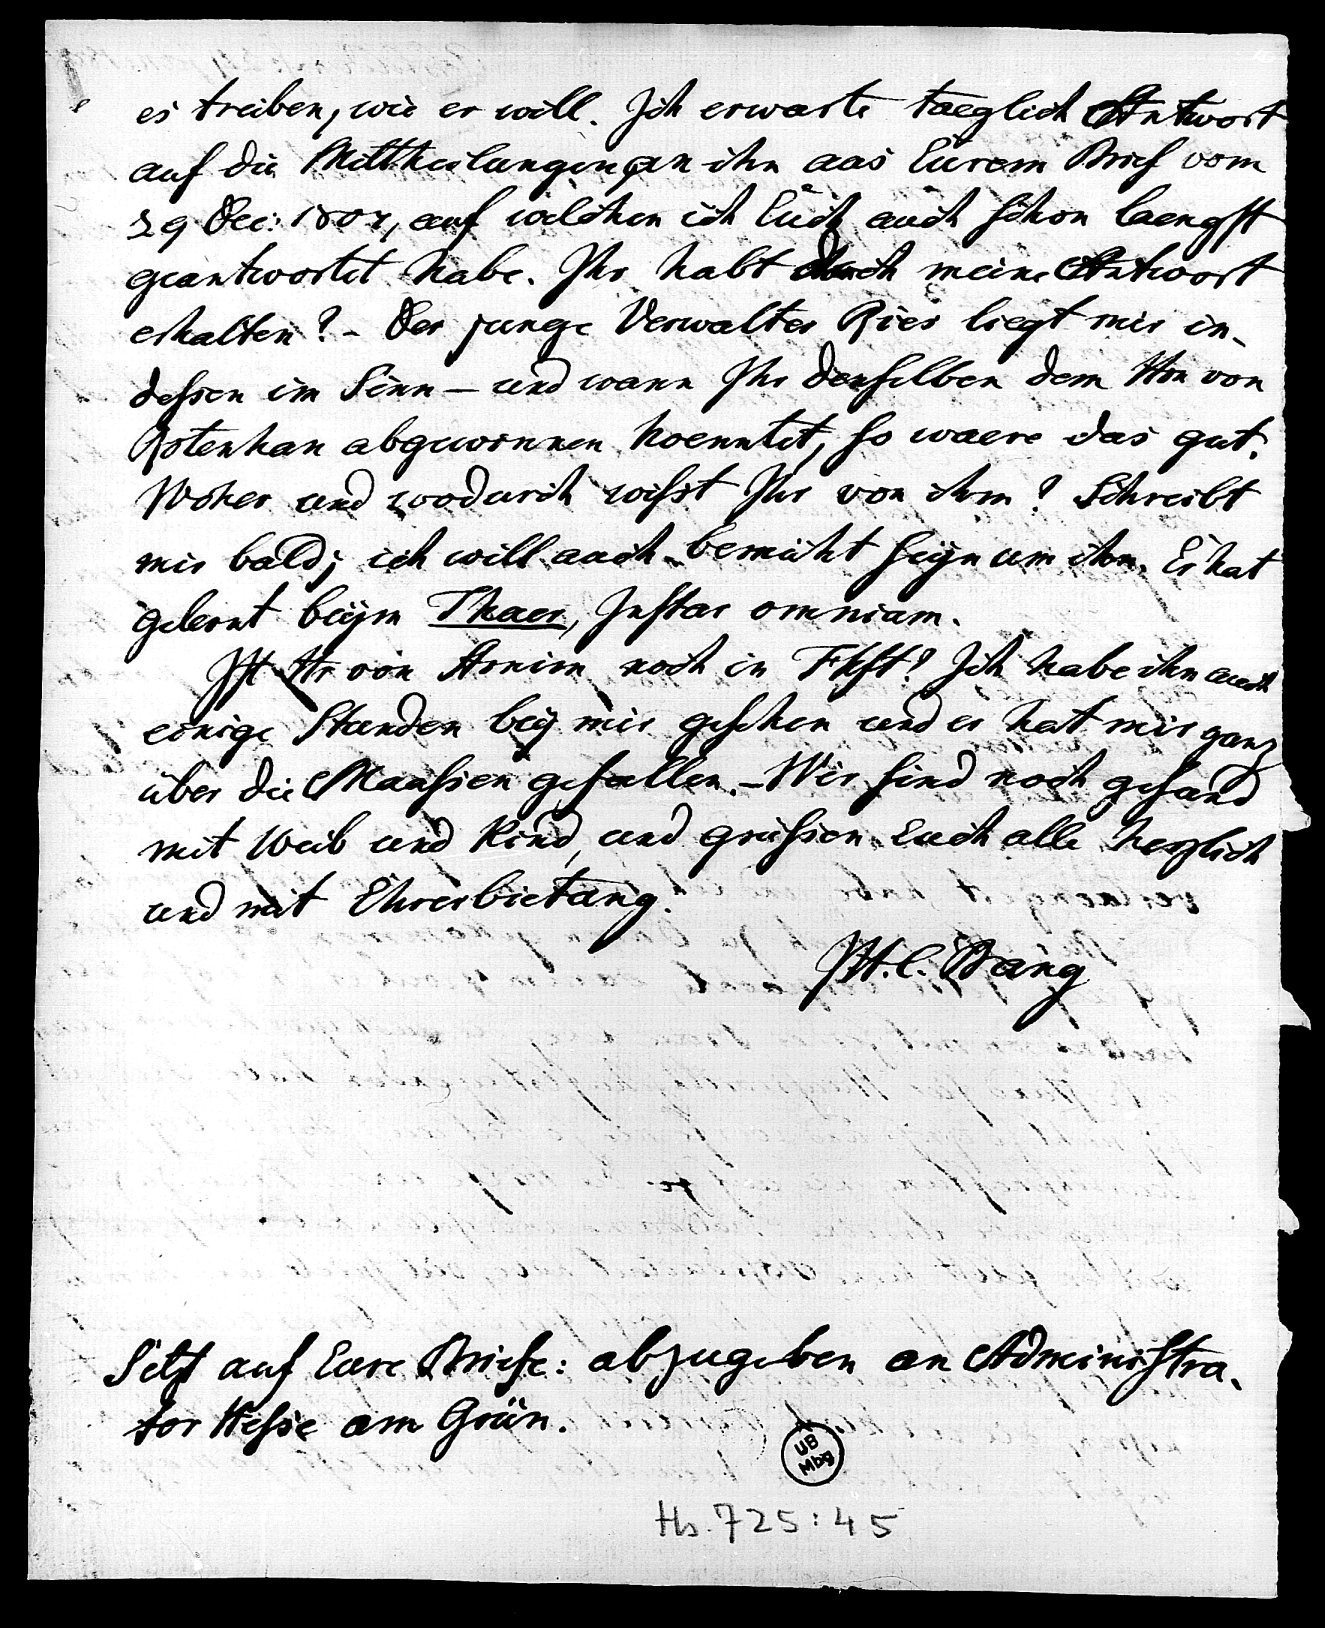 es treiben, wie er will. Ich erwarte taeglich Antwort
auf die Mittheilungen an ihn aus Eurem Brief vom
29 Dec: 1807, auf welchen ich Euch auch schon laengst
geantwortet habe. Ihr habt doch meine Antwort
erhalten? - Der junge Verwalter Ries liegt mir in-
dessen im Sinn - und wann Ihr denselben dem Hrn von
Rotenhan abgewinnen koenntet, so waere das gut.
Woher und wodurch wisst Ihr von ihm? Schreibt
mir bald; ich will auch bemüht seyn um ihn. Er hat
gelernt beym Thaer, Instar omnium.
Ist Hr von Arnim noch in Fkft? Ich habe ihn auch
einige Stunden bey mir gesehen und er hat mir ganz
über die Maassen gefallen. - Wir sind noch gesund
mit Weib und Kind, und grüssen Euch alle herzlich
und mit Ehrerbietung.
JH. C. Bang
Setzt auf Eure Briefe: abzugeben an Administra-
tor Hesse am Grün.
UB
Mbg
Hs. 725:45